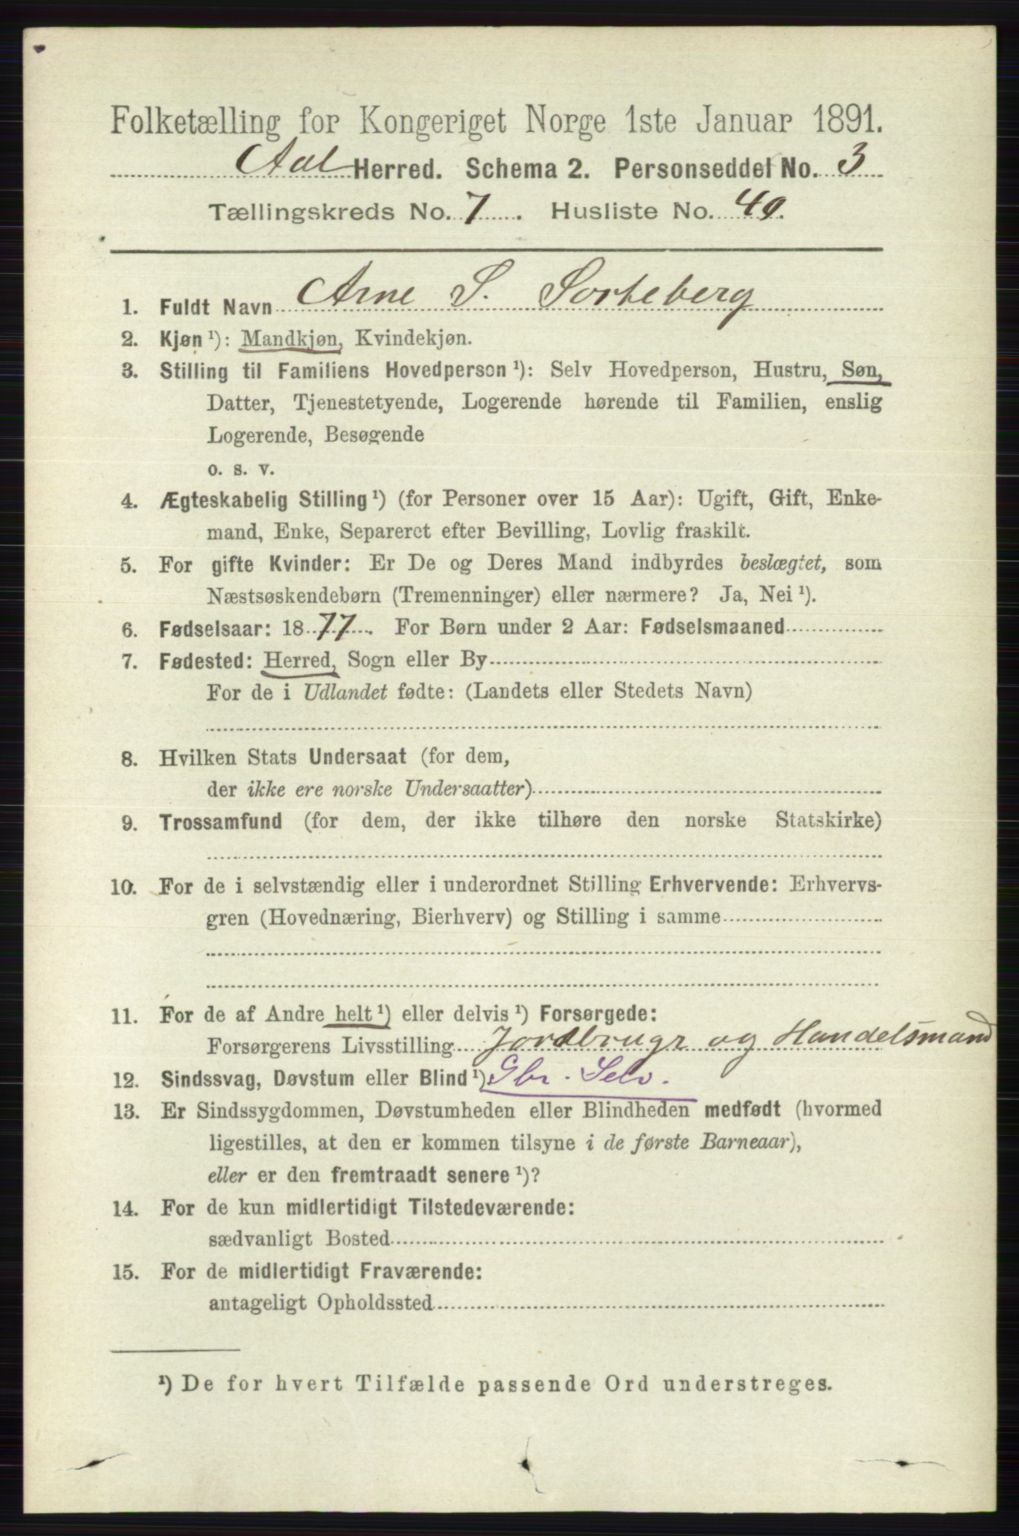 Folketælling for Kongeriget Norge 1ste Januar 1891.
Aal Herred. Schema 2. Personseddel No. 3
Tællingskreds No. 7. Husliste No. 40.
1. Fuldt Navn Arne S. Sorteberg
2. Kjøn ¹): Mandkjøn, Kvindekjøn.
3. Stilling til Familiens Hovedperson ¹): Selv Hovedperson, Hustru, Søn,
Datter, Tjenestetyende, Logerende hørende til Familien, enslig
Logerende, Besøgende
o. s. v.
4. Ægteskabelig Stilling ¹) (for Personer over 15 Aar): Ugift, Gift, Enke-
mand, Enke, Separeret efter Bevilling, Lovlig fraskilt.
5. For gifte Kvinder: Er De og Deres Mand indbyrdes beslægtet, som
Næstsøskendebørn (Tremenninger) eller nærmere? Ja, Nei ¹).
6. Fødselsaar: 1877. For Børn under 2 Aar: Fødselsmaaned
7. Fødested: Herred, Sogn eller By
For de i Udlandet fødte: (Landets eller Stedets Navn)
8. Hvilken Stats Undersaat (for dem,
der ikke ere norske Undersaatter)
9. Trossamfund (for dem, der ikke tilhøre den norske Statskirke)
10. For de i selvstændig eller i underordnet Stilling Erhvervende: Erhvervs-
gren (Hovednæring, Bierhverv) og Stilling i samme
11. For de af Andre helt ¹) eller delvis ¹) Forsørgede:
Forsørgerens Livsstilling Jordbrugr og Handelsmand
12. Sindssvag, Døvstum eller Blind ¹). Gbr. Selv.
13. Er Sindssygdommen, Døvstumheden eller Blindheden medfødt (hvormed
ligestilles, at den er kommen tilsyne i de første Barneaar),
eller er den fremtraadt senere ¹)?
14. For de kun midlertidigt Tilstedeværende:
sædvanligt Bosted
15. For de midlertidigt Fraværende:
antageligt Opholdssted
¹) De for hvert Tilfælde passende Ord understreges.